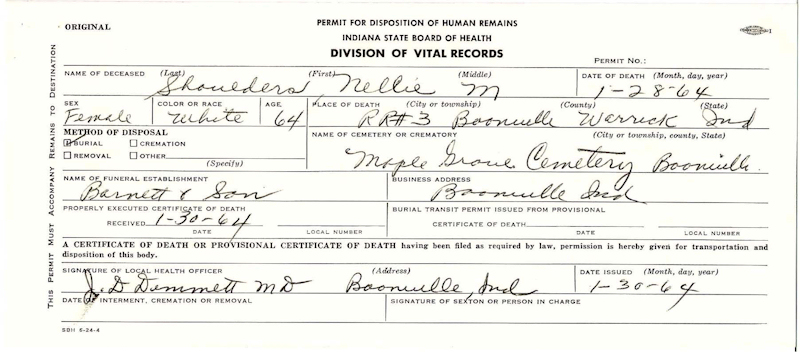 ORIGINAL
PERMIT FOR DISPOSITION OF HUMAN REMAINS
INDIANA STATE BOARD OF HEALTH
DIVISION OF VITAL RECORDS
PERMIT NO.:
THIS PERMIT MUST ACCOMPANY REMAINS TO DESTINATION
NAME OF DECEASED (Last) (First) (Middle) DATE OF DEATH (Month, day, year)
Shoulders Nellie M 1-28-64
SEX COLOR OR RACE AGE PLACE OF DEATH (City or township) (County) (State)
Female White 64 RR#3 Boonville Warrick Ind
METHOD OF DISPOSAL NAME OF CEMETERY OR CREMATORY (City or township, county, State)
BURIAL CREMATION
REMOVAL OTHER
(Specify)
Maple Grove Cemetery Boonville.
NAME OF FUNERAL ESTABLISHMENT BUSINESS ADDRESS
Barnett & Son Boonville Ind
PROPERLY EXECUTED CERTIFICATE OF DEATH BURIAL TRANSIT PERMIT ISSUED FROM PROVISIONAL
RECEIVED 1-30-64 CERTIFICATE OF DEATH
DATE LOCAL NUMBER DATE LOCAL NUMBER
A CERTIFICATE OF DEATH OR PROVISIONAL CERTIFICATE OF DEATH having been filed as required by law, permission is hereby given for transportation and
disposition of this body.
SIGNATURE OF LOCAL HEALTH OFFICER (Address) DATE ISSUED (Month, day, year)
J. D Demmett MD Boonville, Ind 1-30-64
DATE OF INTERMENT, CREMATION OR REMOVAL SIGNATURE OF SEXTON OR PERSON IN CHARGE
SBH 6-24-4